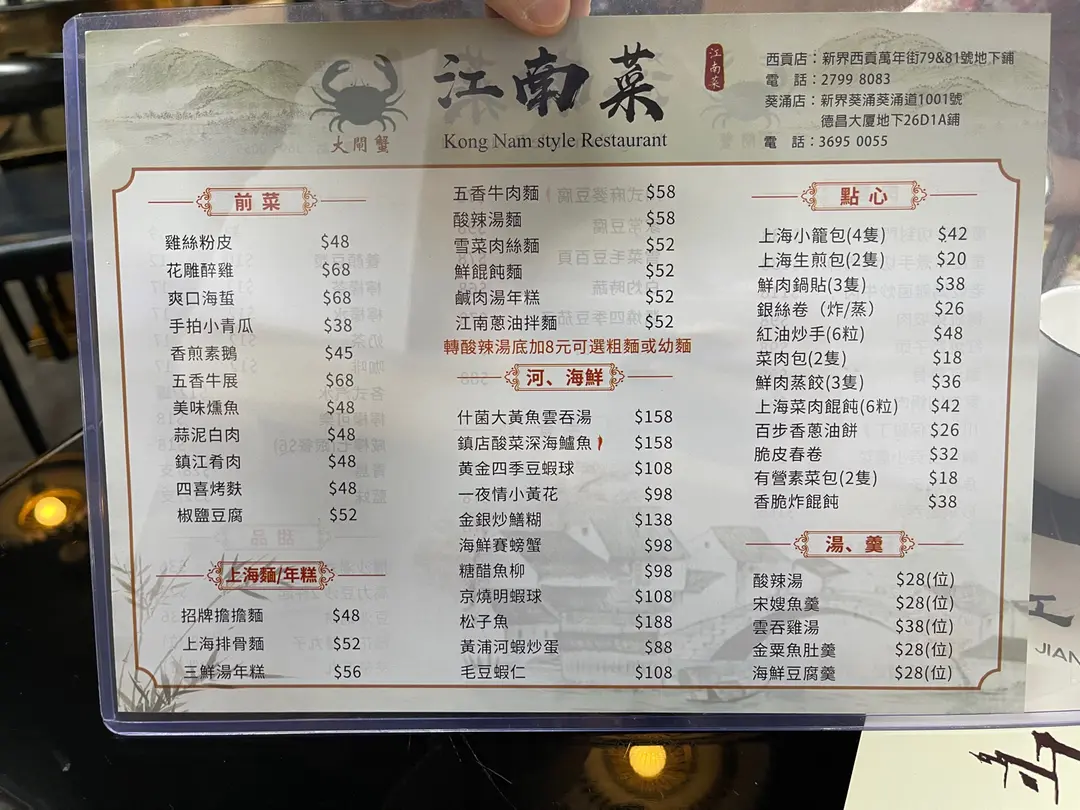 江南菜
江南菜
Kong Nam style Restaurant
大閘蟹
西貢店：新界西貢萬年街79&81號地下鋪
電 話：2799 8083
葵涌店：新界葵涌葵涌道1001號
德昌大廈地下26D1A鋪
電 話：3695 0055
前菜
雞絲粉皮 $48
花雕醉雞 $68
爽口海蜇 $68
手拍小青瓜 $38
香煎素鵝 $45
五香牛展 $68
美味燻魚 $48
蒜泥白肉 $48
鎮江肴肉 $48
四喜烤麩 $48
椒鹽豆腐 $52
上海麵/年糕
招牌擔擔麵 $48
上海排骨麵 $52
三鮮湯年糕 $56
五香牛肉麵 $58
酸辣湯麵 $58
雪菜肉絲麵 $52
鮮餛飩麵 $52
鹹肉湯年糕 $52
江南蔥油拌麵 $52
轉酸辣湯底加8元可選粗麵或幼麵
河、海鮮
什菌大黃魚雲吞湯 $158
鎮店酸菜深海鱸魚 $158
黃金四季豆蝦球 $108
一夜情小黃花 $98
金銀炒鱔糊 $138
海鮮賽螃蟹 $98
糖醋魚柳 $98
京燒明蝦球 $108
松子魚 $188
黃浦河蝦炒蛋 $88
毛豆蝦仁 $108
點心
上海小籠包(4隻) $42
上海生煎包(2隻) $20
鮮肉鍋貼(3隻) $38
銀絲卷（炸/蒸） $26
紅油炒手(6粒) $48
菜肉包(2隻) $18
鮮肉蒸餃(3隻) $36
上海菜肉餛飩(6粒) $42
百步香蔥油餅 $26
脆皮春卷 $32
有營素菜包(2隻) $18
香脆炸餛飩 $38
湯、羹
酸辣湯 $28(位)
宋嫂魚羹 $28(位)
雲吞雞湯 $38(位)
金粟魚肚羹 $28(位)
海鮮豆腐羹 $28(位)